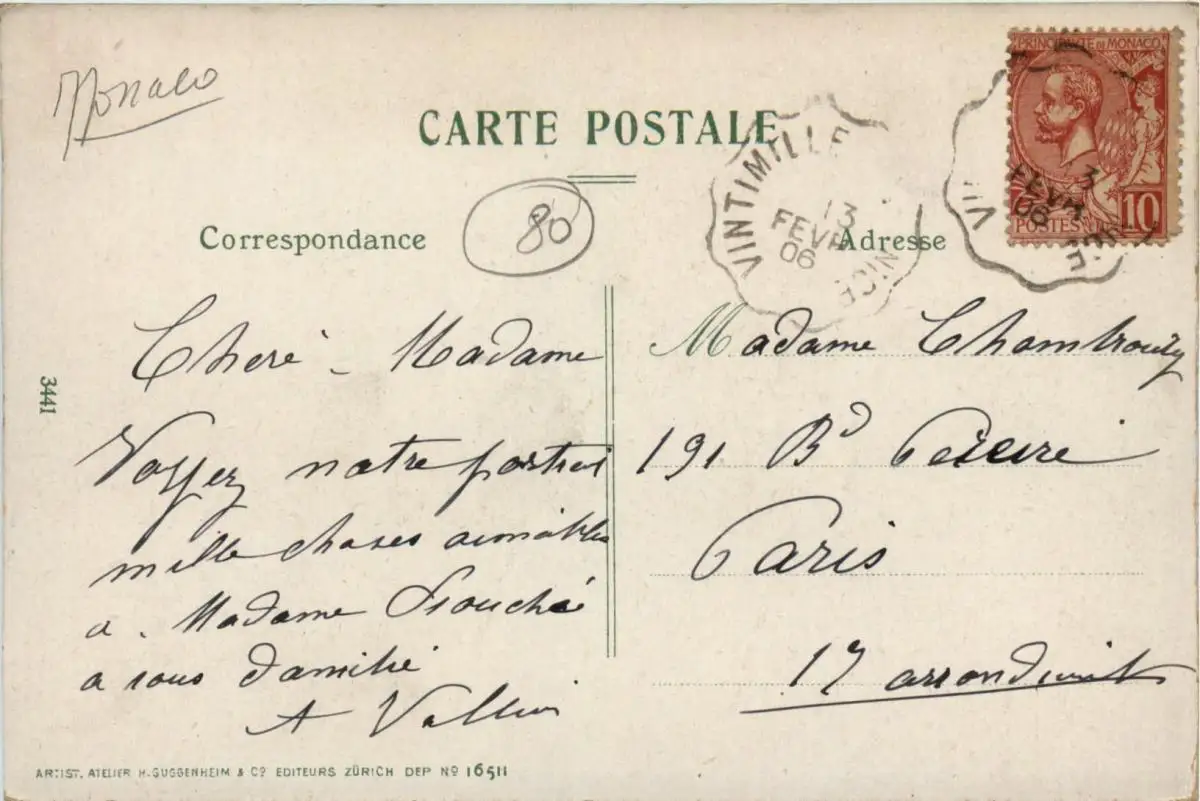 Monaco
CARTE POSTALE
80
Correspondance
Adresse
PRINCIPAUTE DE MONACO
POSTES
10
VINTIMILLE
13
FEVR
06
NICE
3
FEVR
06
VI
CE
3441
Cheré - Madame
Voyez notre portrait
mille choses aimables
a. Madame
a vous d'amitié
A Vallin
Madame
191 Bd Pereire
Paris
17 arrondismt
ARTIST. ATELIER H. GUGGENHEIM & Co EDITEURS ZÜRICH DEP No 16511